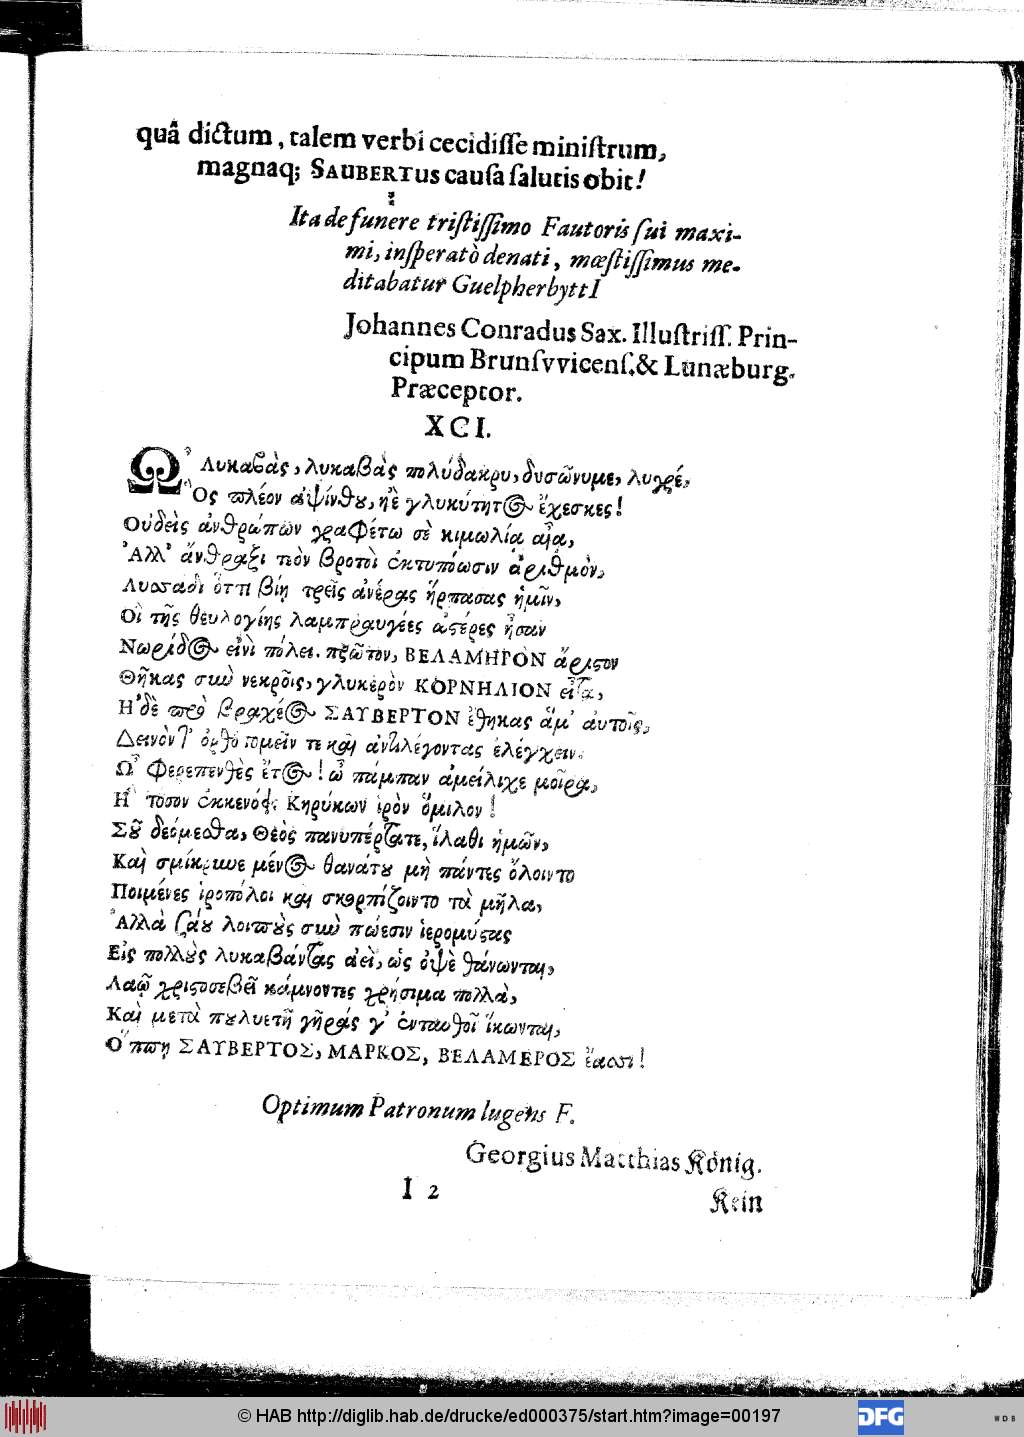 quâ dictum, talem verbi cecidiſſe miniſtrum,
magnaq; SAUBERTus cauſa ſalutis obit!
Ita de funere triſtiſſimo Fautoris ſui maxi-
mi, inſperatò denati, mœſtiſſimus me-
ditabatur GuelpherbyttI
Johannes Conradus Sax. Illuſtriſſ. Prin-
cipum Brunſvvicenſ. & Lunæburg.
Præceptor.
XCI.
Ὦ Λυκαβὰς, λυκαβὰς πολύδακρυ, δυσώνυμε, λυγρέ,
Ὃς πλέον αἰψίνθου, ἠὲ γλυκύτητος ἔχεσκες!
Οὐδεὶς ἀνθρώπων γραφέτω σὲ κιμωλίᾳ αἴᾳ,
Ἀλλ' ἄνθραξι τεὸν βροτοὶ ἐκτυπόωσιν ἀριθμὸν,
ὅττι βίῃ τρεῖς ἀνέρας ἥρπασας ἡμῖν,
Οἳ τῆς θευλογίης λαμπραυγέες ἀστέρες ἦσαν
Νωρίδος εἰνὶ πόλει. πρῶτον, ΒΕΛΑΜΗΡΟΝ ἄριστον
Θῆκας σὺν νεκροῖς, γλυκερὸν ΚΟΡΝΗΛΙΟΝ εἶτα,
Ἠδὲ πρὸ βραχέος ΣΑΥΒΕΡΤΟΝ ἔθηκας ἅμ' αὐτοῖς,
Δεινὸν τ' ὀρθοτομεῖν τε καὶ ἀντιλέγοντας ἐλέγχειν.
Ὦ Φερεπενθὲς ἔτος! ὦ πάμπαν ἀμείλιχε μοῖρα,
Ἦ τόσον ἐκκενόᾳς Κηρύκων ἱρὸν ὅμιλον!
Σοῦ δεόμεσθα, Θεὸς πανυπέρτατε, ἵλαθι ἡμῶν,
Καὶ σμίκρυνε μένος θανάτου μὴ πάντες ὄλοιντο
Ποιμένες ἱροπόλοι καὶ σκορπίζοιντο τὰ μῆλα,
Ἀλλὰ ζάου λοιποὺς σὺν πώεσιν ἱερομύστας
Εἰς πολλοὺς λυκαβάντας ἀεὶ, ὡς ὀψὲ θάνωνται,
Λαῷ χριστοσεβεῖ κάμνοντες χρήσιμα πολλὰ,
Καὶ μετὰ πουλυετῆ γῆράς γ' ἐνταυθοῖ ἵκωνται,
Ὅππη ΣΑΥΒΕΡΤΟΣ, ΜΑΡΚΟΣ, ΒΕΛΑΜΕΡΟΣ ἔασι!
Optimum Patronum lugens F.
Georgius Matthias König.
I 2
Kein
© HAB http://diglib.hab.de/drucke/ed000375/start.htm?image=00197
DFG
WDB